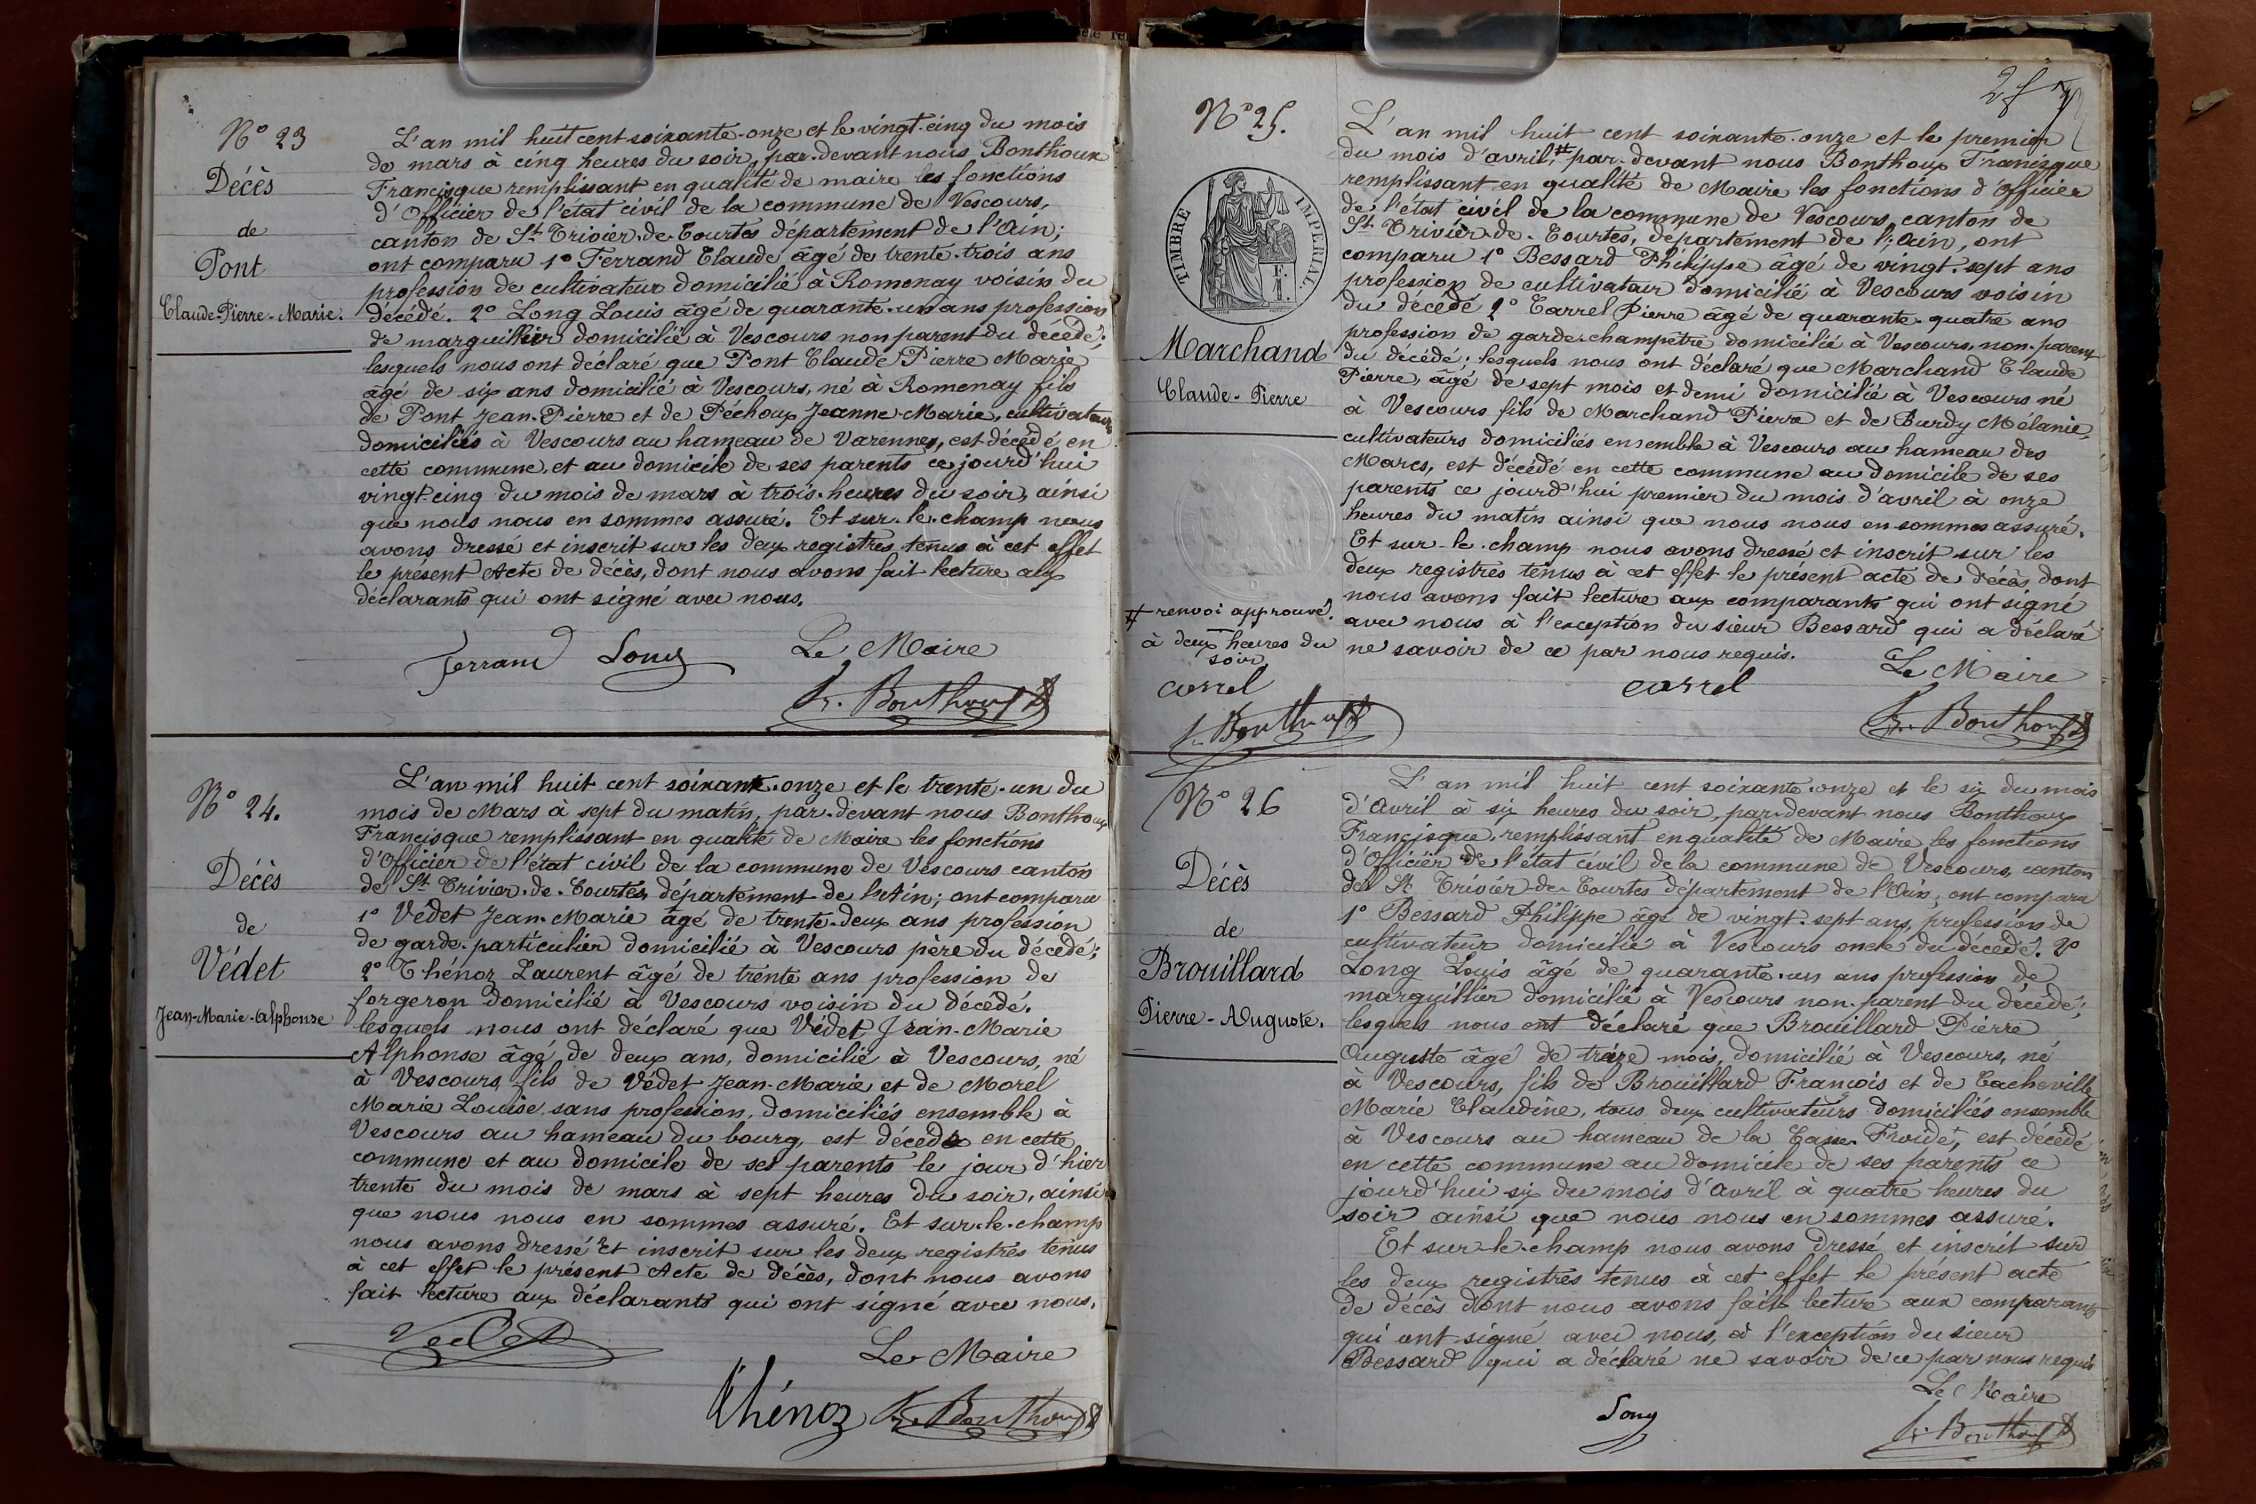 N° 23
Décès
de
Pont
Claude-Pierre-Marie.
L'an mil huit cent soixante-onze et le vingt-cinq du mois
de mars à cinq heures du soir, par-devant nous Bonthoux
Francisque remplissant en qualité de maire les fonctions
d'Officier de l'état civil de la commune de Vescours,
canton de St Trivier-de-Courtes département de l'Ain;
ont comparu 1° Ferrand Claude âgé de trente-trois ans
profession de cultivateur domicilié à Romenay voisin du
décédé. 2° Long Louis âgé de quarante-un ans profession
de marguillier domicilié à Vescours non parent du décédé;
lesquels nous ont déclaré que Pont Claude Pierre Marie
âgé de six ans domicilié à Vescours, né à Romenay fils
de Pont Jean-Pierre et de Péchoux Jeanne-Marie, cultivateurs
domiciliés à Vescours au hameau de Varennes, est décédé en
cette commune, et au domicile de ses parents ce jourd'hui
vingt-cinq du mois de mars à trois heures du soir, ainsi
que nous nous en sommes assuré. Et sur-le-champ nous
avons dressé et inscrit sur les deux registres tenus à cet effet
le présent Acte de décès, dont nous avons fait lecture aux
déclarants qui ont signé avec nous.
Ferrand Long Le Maire
Fr. Bonthoux
N° 24.
Décès
de
Védet
Jean-Marie-Alphonse
L'an mil huit cent soixante-onze et le trente-un du
mois de Mars à sept du matin, par-devant nous Bonthoux
Francisque remplissant en qualité de Maire les fonctions
d'Officier de l'état civil de la commune de Vescours canton
de St Trivier-de-Courtes, département de l'Ain; ont comparu
1° Védet Jean-Marie âgé de trente-deux ans profession
de garde-particulier domicilié à Vescours père du décédé;
2° Thénoz Laurent âgé de trente ans profession de
forgeron domicilié à Vescours voisin du décédé.
lesquels nous ont déclaré que Védet Jean-Marie
Alphonse âgé de deux ans, domicilié à Vescours, né
à Vescours, fils de Védet Jean-Marie et de Morel
Marie Louise, sans profession, domiciliés ensemble à
Vescours au hameau du bourg, est décédé en cette
commune et au domicile de ses parents le jour d'hier
trente du mois de mars à sept heures du soir, ainsi
que nous nous en sommes assuré. Et sur-le-champ
nous avons dressé et inscrit sur les deux registres tenus
à cet effet le présent Acte de décès, dont nous avons
fait lecture aux déclarants qui ont signé avec nous.
Vedet Le Maire
Thénoz Fr. Bonthoux
N° 25.
TIMBRE IMPERIAL.
Marchand
Claude-Pierre
L'an mil huit cent soixante-onze et le premier
du mois d'avril, # par-devant nous Bonthoux Francisque
remplissant en qualité de Maire les fonctions d'Officier
de l'état civil de la commune de Vescours, canton de
St Trivier-de-Courtes, département de l'Ain, ont
comparu 1° Bessard Philippe âgé de vingt-sept ans
profession de cultivateur domicilié à Vescours voisin
du décédé 2° Carrel Pierre âgé de quarante-quatre ans
profession de garde-champêtre domicilié à Vescours, non-parent
du décédé; lesquels nous ont déclaré que Marchand Claude
Pierre, âgé de sept mois et demi domicilié à Vescours né
à Vescours fils de Marchand Pierre et de Burdy Mélanie,
cultivateurs domiciliés ensemble à Vescours au hameau des
Marcs, est décédé en cette commune au domicile de ses
parents ce jourd'hui premier du mois d'avril à onze
heures du matin ainsi que nous nous en sommes assuré.
Et sur-le-champ nous avons dressé et inscrit sur les
deux registres tenus à cet effet le présent acte de décès dont
nous avons fait lecture aux comparants qui ont signé
avec nous à l'exception du sieur Bessard qui a déclaré
ne savoir de ce par nous requis.
# renvoi approuvé
à deux heures du
soir
carrel
Fr. Bonthoux
carrel
Le Maire
Fr. Bonthoux
N° 26
Décès
de
Brouillard
Pierre-Auguste.
L'an mil huit cent soixante-onze et le six du mois
d'Avril à six heures du soir, par-devant nous Bonthoux
Francisque, remplissant en qualité de Maire les fonctions
d'Officier de l'état civil de la commune de Vescours, canton
de St Trivier-de-Courtes département de l'Ain, ont comparu
1° Bessard Philippe âgé de vingt-sept ans, profession de
cultivateur domicilié à Vescours oncle du décédé. 2°
Long Louis âgé de quarante-un ans profession de
marguillier domicilié à Vescours non-parent du décédé;
lesquels nous ont déclaré que Brouillard Pierre
Auguste âgé de treize mois, domicilié à Vescours, né
à Vescours, fils de Brouillard François et de Cacheville
Marie Claudine, tous deux cultivateurs domiciliés ensemble
à Vescours au hameau de la Froide, est décédé
en cette commune au domicile de ses parents ce
jourd'hui six du mois d'Avril à quatre heures du
soir ainsi que nous nous en sommes assuré.
Et sur-le-champ nous avons dressé et inscrit sur
les deux registres tenus à cet effet le présent acte
de décès dont nous avons fait lecture aux comparants
qui ont signé avec nous, à l'exception du sieur
Bessard qui a déclaré ne savoir de ce par nous requis
Le Maire
Long
Fr. Bonthoux